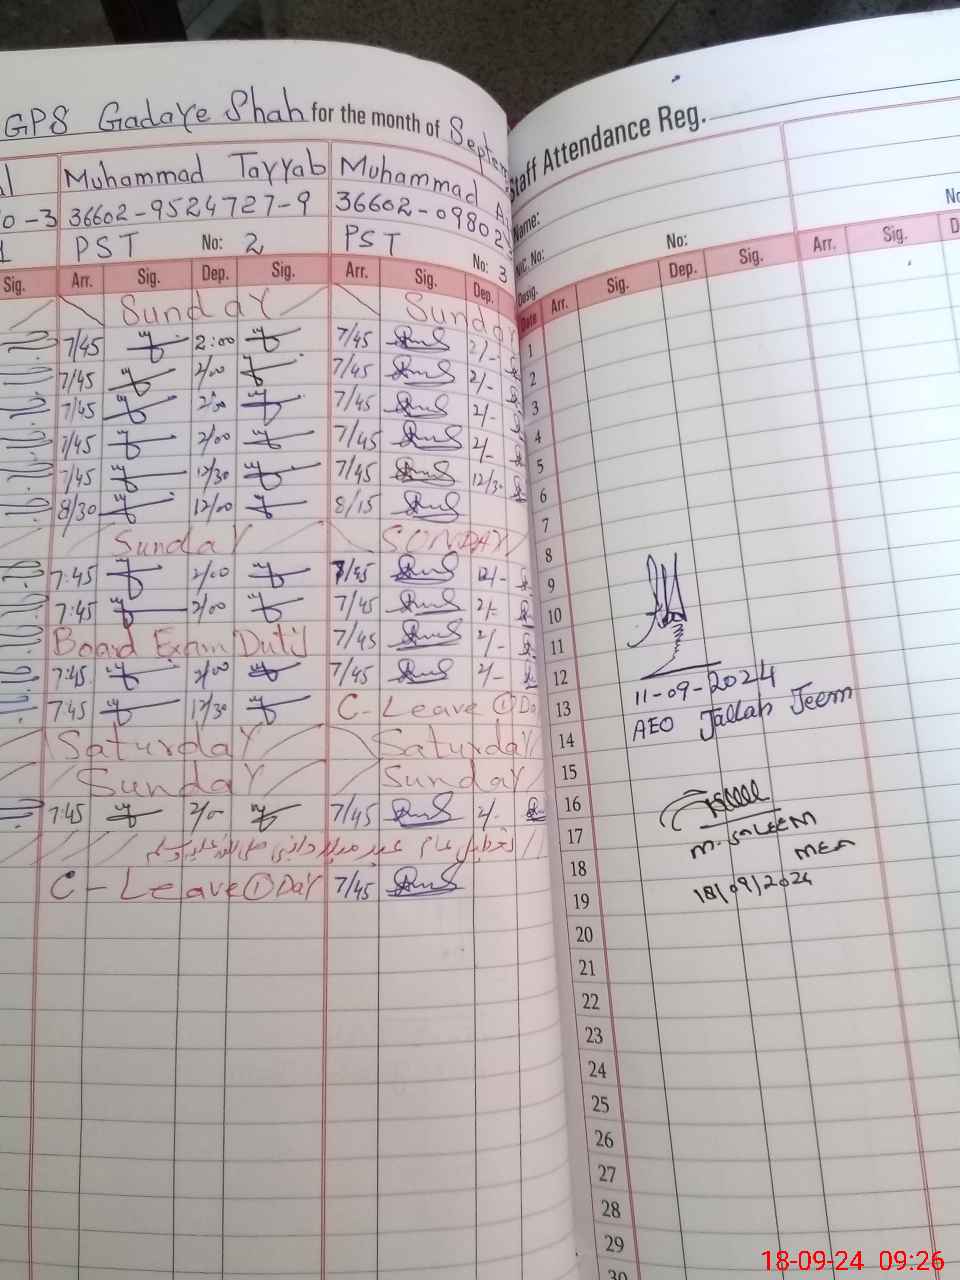 GPS Gadaye Shah for the month of Septem
Muhammad Tayyab Muhammad
0-3 36602-9524727-9 36602-09802
1 PST No: 2 PST No: 3
Sig. Arr. Sig. Dep. Sig. Arr. Sig. Dep.
Sunday Sunday
7/45 2:00 7/45 2/-
7/45 2/00 7/45 2/-
7/45 7/45 2/-
7/45 2/00 7/45 2/-
7/45 12/30 7/45 12/30
8/30 12/00 8/15
Sunday SUNDAY
7:45 2/00 7/45
7:45 2/00 7/45 2/-
Board Exam Duty 7/45 2/-
7:45 2/00 7/45 2/-
7:45 12/30 C-Leave ①
Saturday Saturday
Sunday Sunday
7:45 7/45 2/-
C-Leave ① Day 7/45
Staff Attendance Reg.
Name:
N.I.C. No:
No:
Desig.
Date Arr. Sig. Dep. Sig. Arr. Sig.
1
2
3
4
5
6
7
8
9
10
11
12
11-09-2024
13
AEO Jallah Jeem
14
15
16
M. SALEEM
17
MEA
18
18/09/2024
19
20
21
22
23
24
25
26
27
28
29
30
18-09-24 09:26